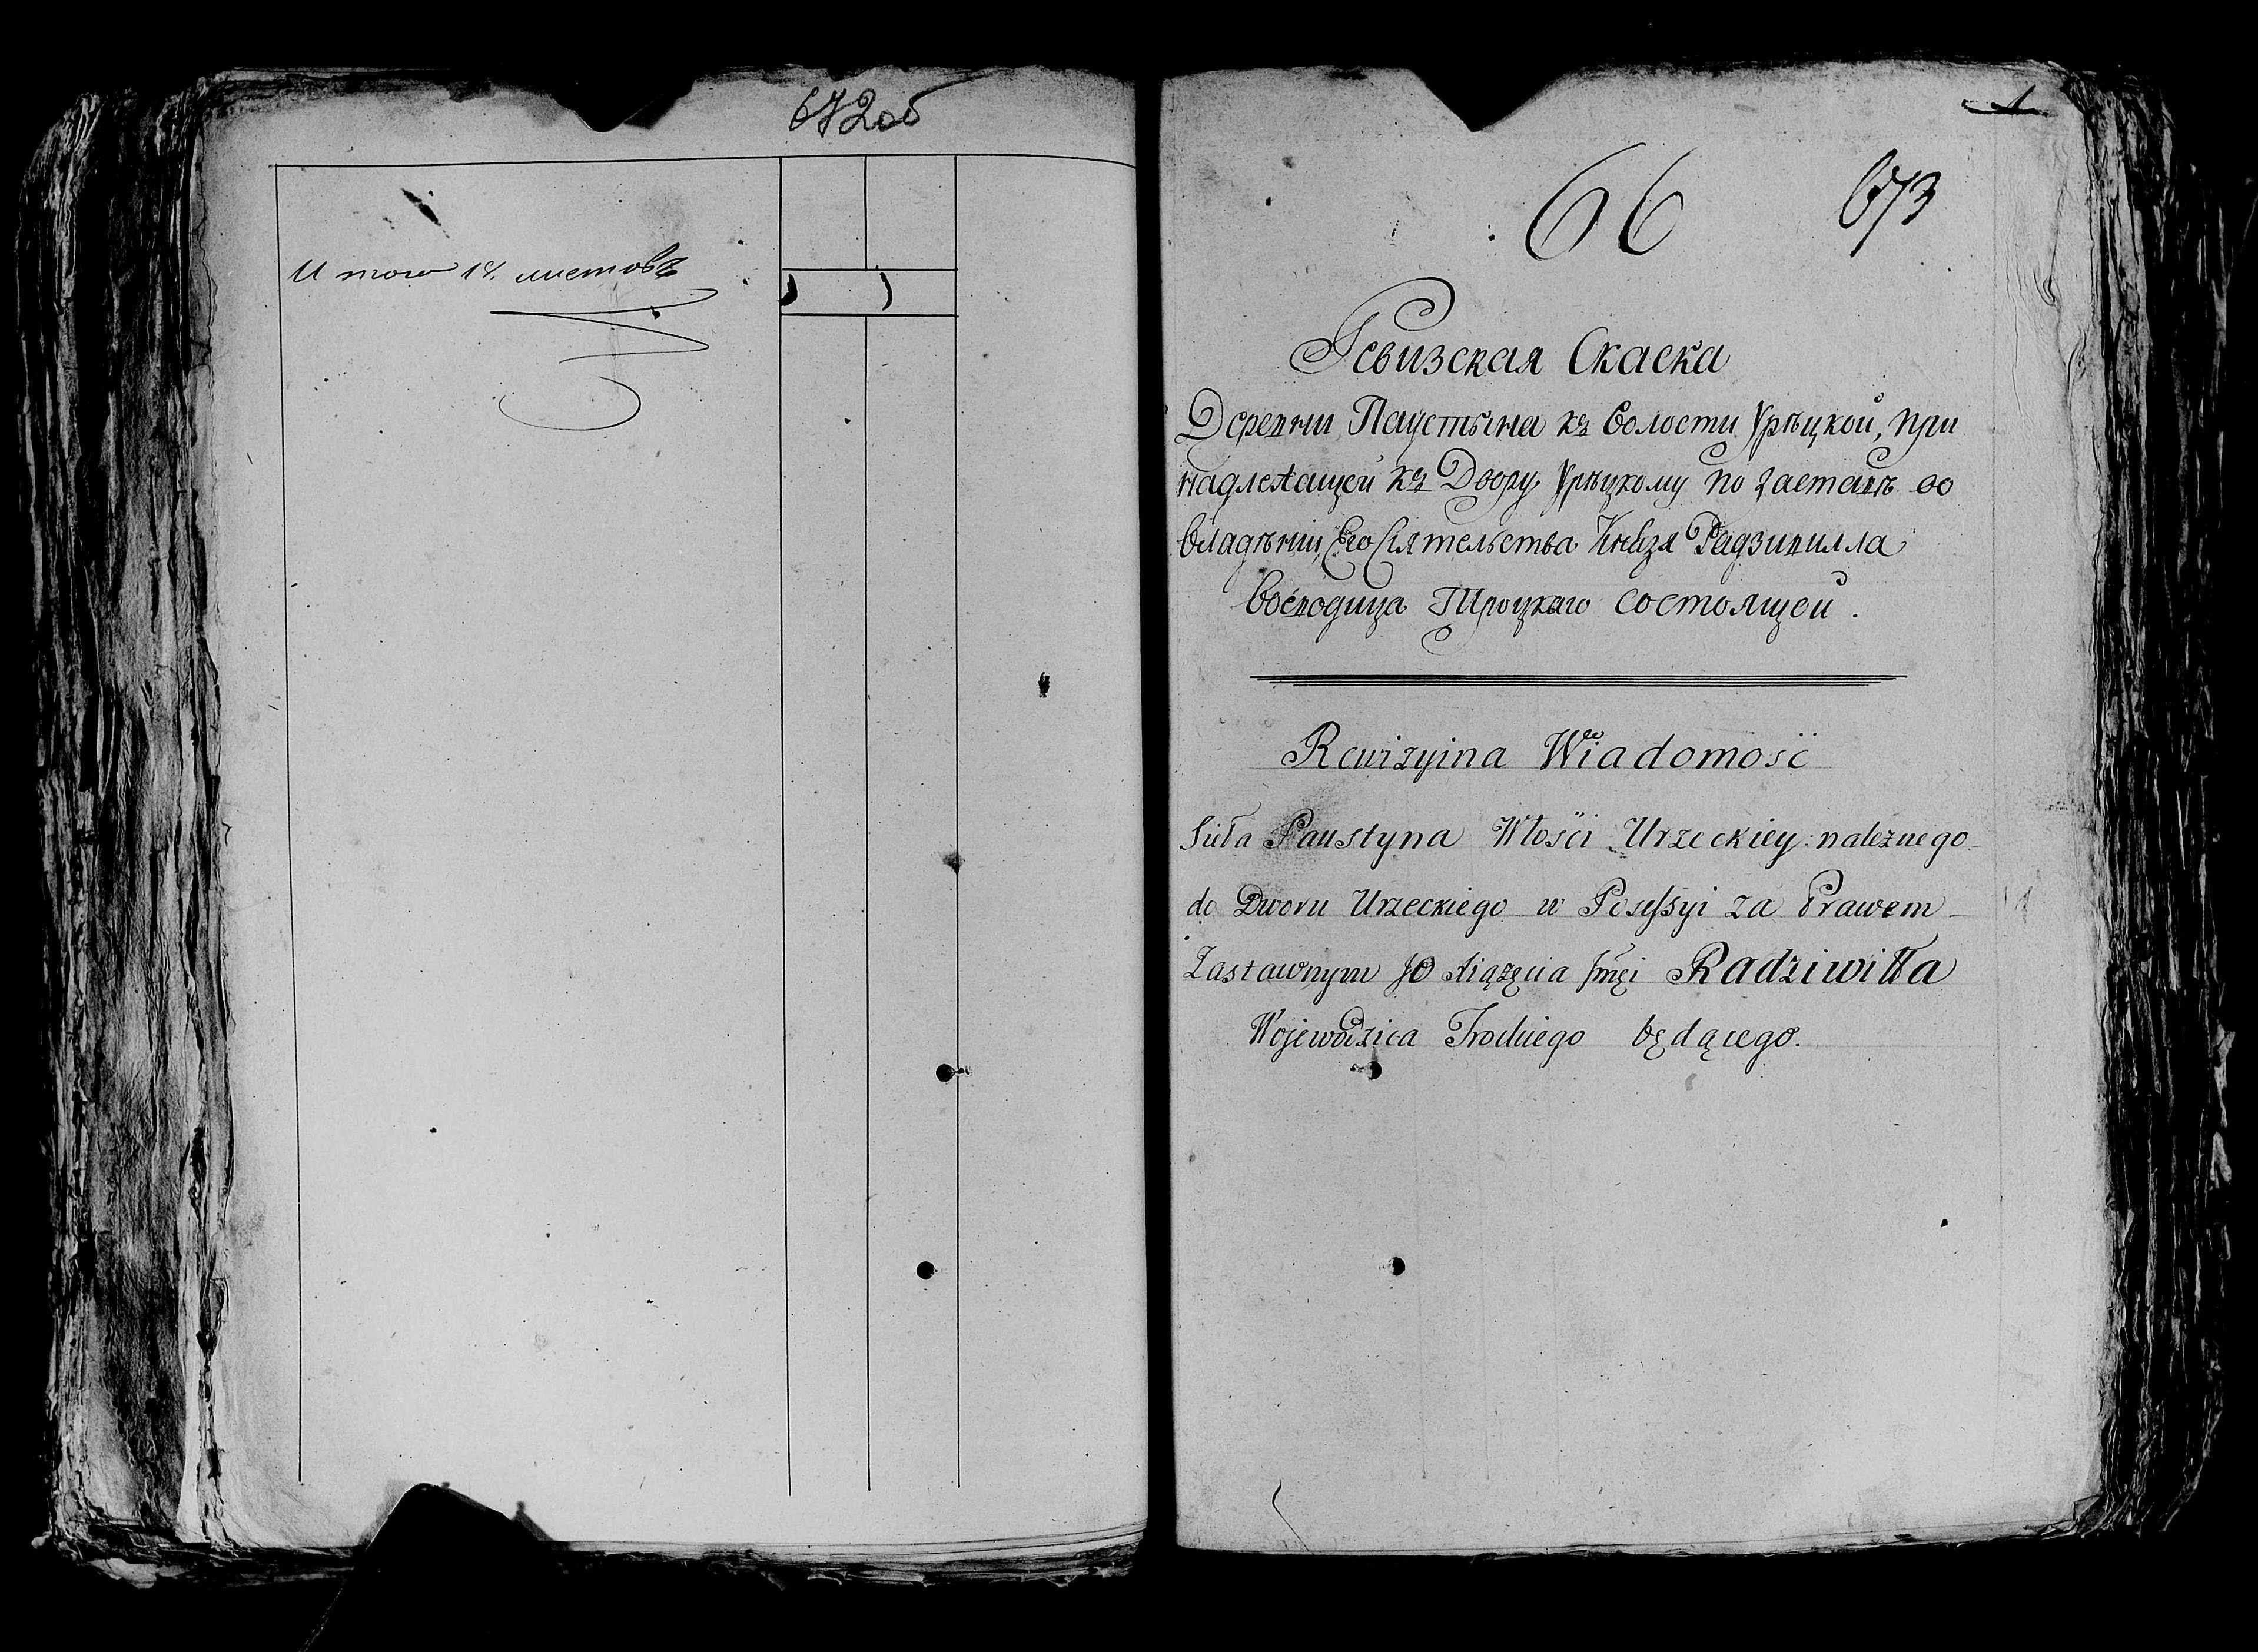 672об
Итого 18. листовъ
1
66
673
Ревизская Скаска
Деревни Паустына къ Волости Урѣцкой, при
надлежащей къ Двору Урѣцкому по Заставѣ во
Владѣнiи Его Сiятельства Князя Радзивилла
Воеводица Троцкаго состоящей.
Rewizyina Wiadomość
Sieła Paustyna Włości Urzeckiey należnego
do Dworu Urzeckiego w Posessyi za Prawem
Zastawnym JO Xiążęcia Jmci Radziwiłła
Wojewodzica Trockiego będącego.